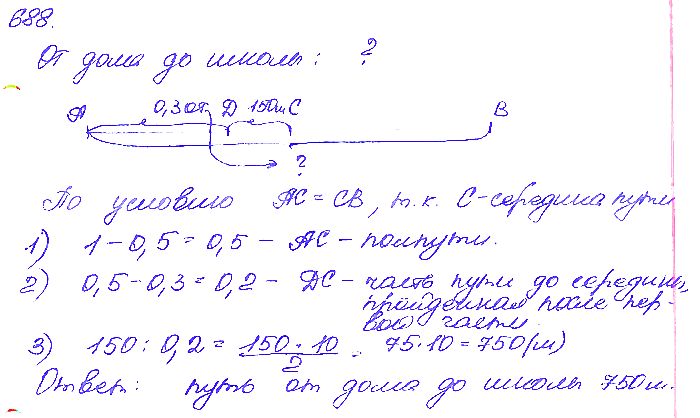 688.
От дома до школы: ?
А 0,3 от D 150м C B
?
По условию AC = CB, т.к. C - середина пути
1) 1 - 0,5 = 0,5 - AC - полпути.
2) 0,5 - 0,3 = 0,2 - DC - часть пути до середины,
пройденная после пер-
вой части.
3) 150 : 0,2 = 150 · 10 / 2 = 75 · 10 = 750 (м)
Ответ: путь от дома до школы 750м.